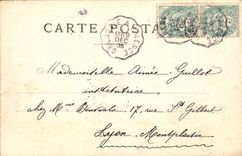 CARTE POSTALE
Mademoiselle Aimée Guillot
institutrice
chez Mme 17, rue St Gilbert
Lyon Montplaisir